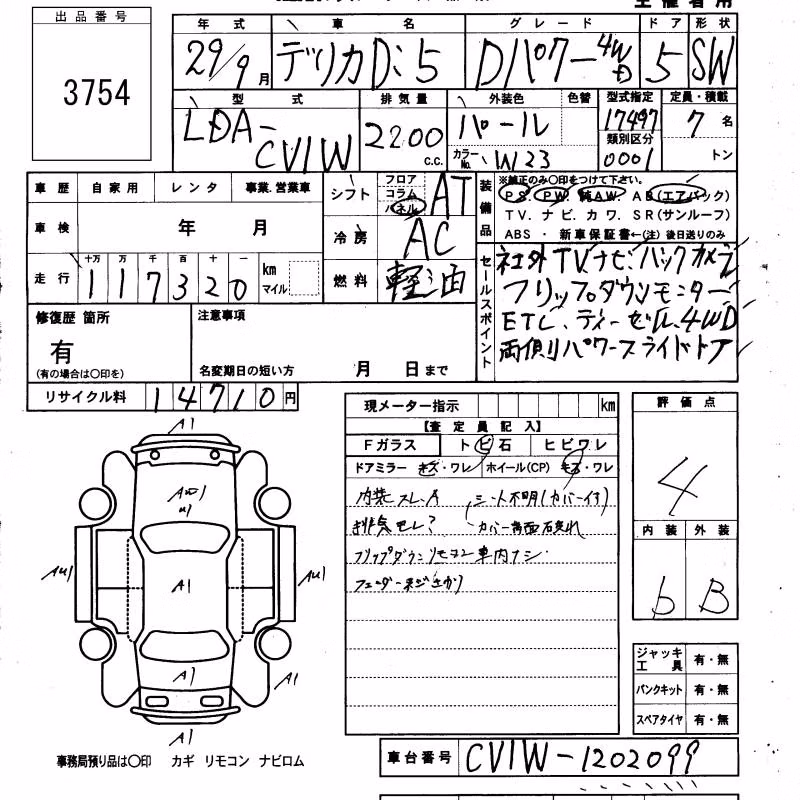 出品番号
3754
年式 車名 グレード ドア 形状
29/9月 デリカD:5 Dパワー4WD 5 SW
型式 排気量 外装色 色替 型式指定 定員・積載
LDA-CV1W 2200 c.c. パール 17497 7名
カラーNo. W23 類別区分 0001 トン
車歴 自家用 レンタ 事業.営業車
シフト フロア コラム パネル AT
車検 年 月
冷房 AC
走行 十万 万 千 百 十 一 km マイル
117320
燃料 軽油
装備品 ※純正のみ〇印をつけて下さい。
PS. PW. 純AW. AB(エアバック)
TV. ナビ. カワ. SR(サンルーフ)
ABS ・ 新車保証書←(注) 後日送りのみ
セールスポイント
社外TVナビ.バックカメラ
フリップダウンモニター
ETC、ディーゼル.4WD
両側パワースライドドア
修復歴 箇所
有
(有の場合は〇印を)
注意事項
名変期日の短い方 月 日まで
リサイクル料 14710円
現メーター指示 km
【査定員記入】
Fガラス トビ石 ヒビワレ
ドアミラー キズ・ワレ ホイール(CP) キズ・ワレ
内装スレ.A シート不明(カバー付)
排気モレ? カバー背面破れ
フリップダウンリモコン車内ナシ
フェンダーネジさわり
評価点
4
内装 外装
b B
A1
A1
AU1 A1 AU1
A1 A1
A1
ジャッキ工具 有・無
パンクキット 有・無
スペアタイヤ 有・無
事務局預り品は〇印 カギ リモコン ナビロム
車台番号 CV1W-1202099